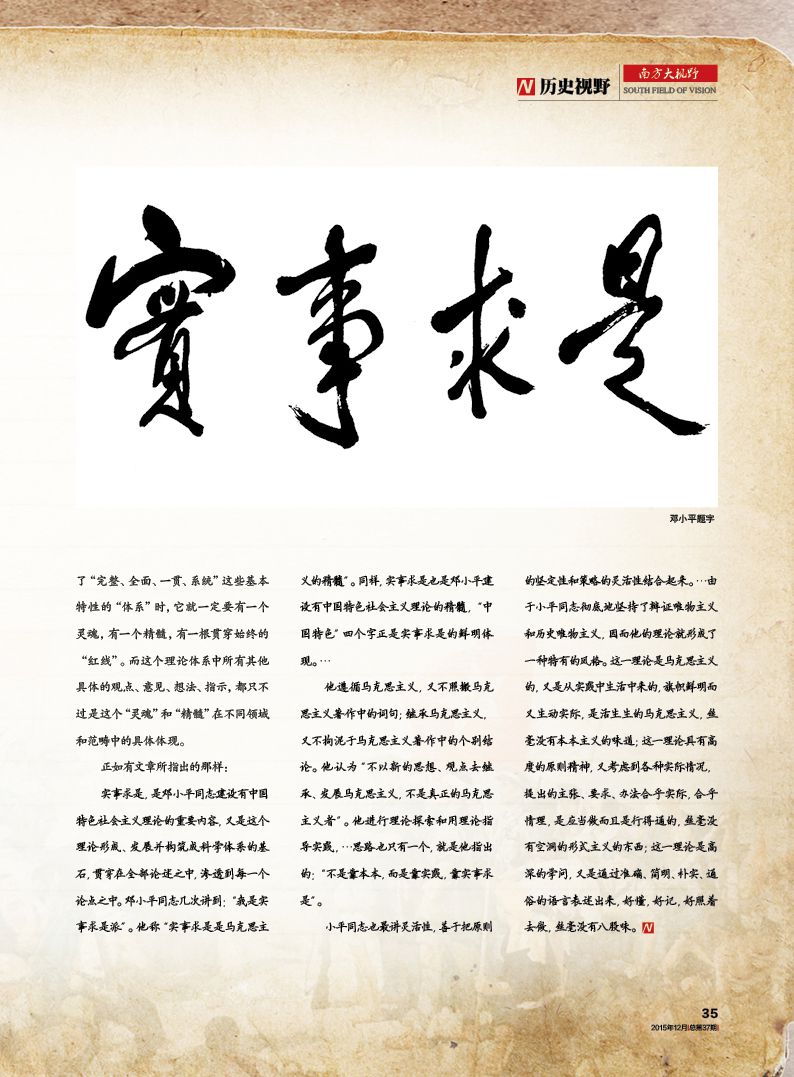 历史视野
南方大视野
SOUTH FIELD OF VISION
實事求是
邓小平题字
了“完整、全面、一贯、系统”这些基本
特性的“体系”时，它就一定要有一个
灵魂，有一个精髓，有一根贯穿始终的
“红线”。而这个理论体系中所有其他
具体的观点、意见、想法、指示，都只不
过是这个“灵魂”和“精髓”在不同领域
和范畴中的具体体现。
正如有文章所指出的那样：
实事求是，是邓小平同志建设有中国
特色社会主义理论的重要内容，又是这个
理论形成、发展并构筑成科学体系的基
石，贯穿在全部论述之中，渗透到每一个
论点之中。邓小平同志几次讲到：“我是实
事求是派”。他称“实事求是是马克思主
义的精髓”。同样，实事求是也是邓小平建
设有中国特色社会主义理论的精髓，“中
国特色”四个字正是实事求是的鲜明体
现。…
他遵循马克思主义，又不照搬马克
思主义著作中的词句；继承马克思主义，
又不拘泥于马克思主义著作中的个别结
论。他认为“不以新的思想、观点去继
承、发展马克思主义，不是真正的马克思
主义者”。他进行理论探索和用理论指
导实践，…思路也只有一个，就是他指出
的：“不是靠本本，而是靠实践，靠实事求
是”。
小平同志也最讲灵活性，善于把原则
的坚定性和策略的灵活性结合起来。…由
于小平同志彻底地坚持了辩证唯物主义
和历史唯物主义，因而他的理论就形成了
一种特有的风格。这一理论是马克思主义
的，又是从实践中生活中来的，旗帜鲜明而
又生动实际，是活生生的马克思主义，丝
毫没有本本主义的味道；这一理论具有高
度的原则精神，又考虑到各种实际情况，
提出的主张、要求、办法合乎实际，合乎
情理，是应当做而且是行得通的，丝毫没
有空洞的形式主义的东西；这一理论是高
深的学问，又是通过准确、简明、朴实、通
俗的语言表述出来，好懂，好记，好照着
去做，丝毫没有八股味。
35
2015年12月|总第37期|